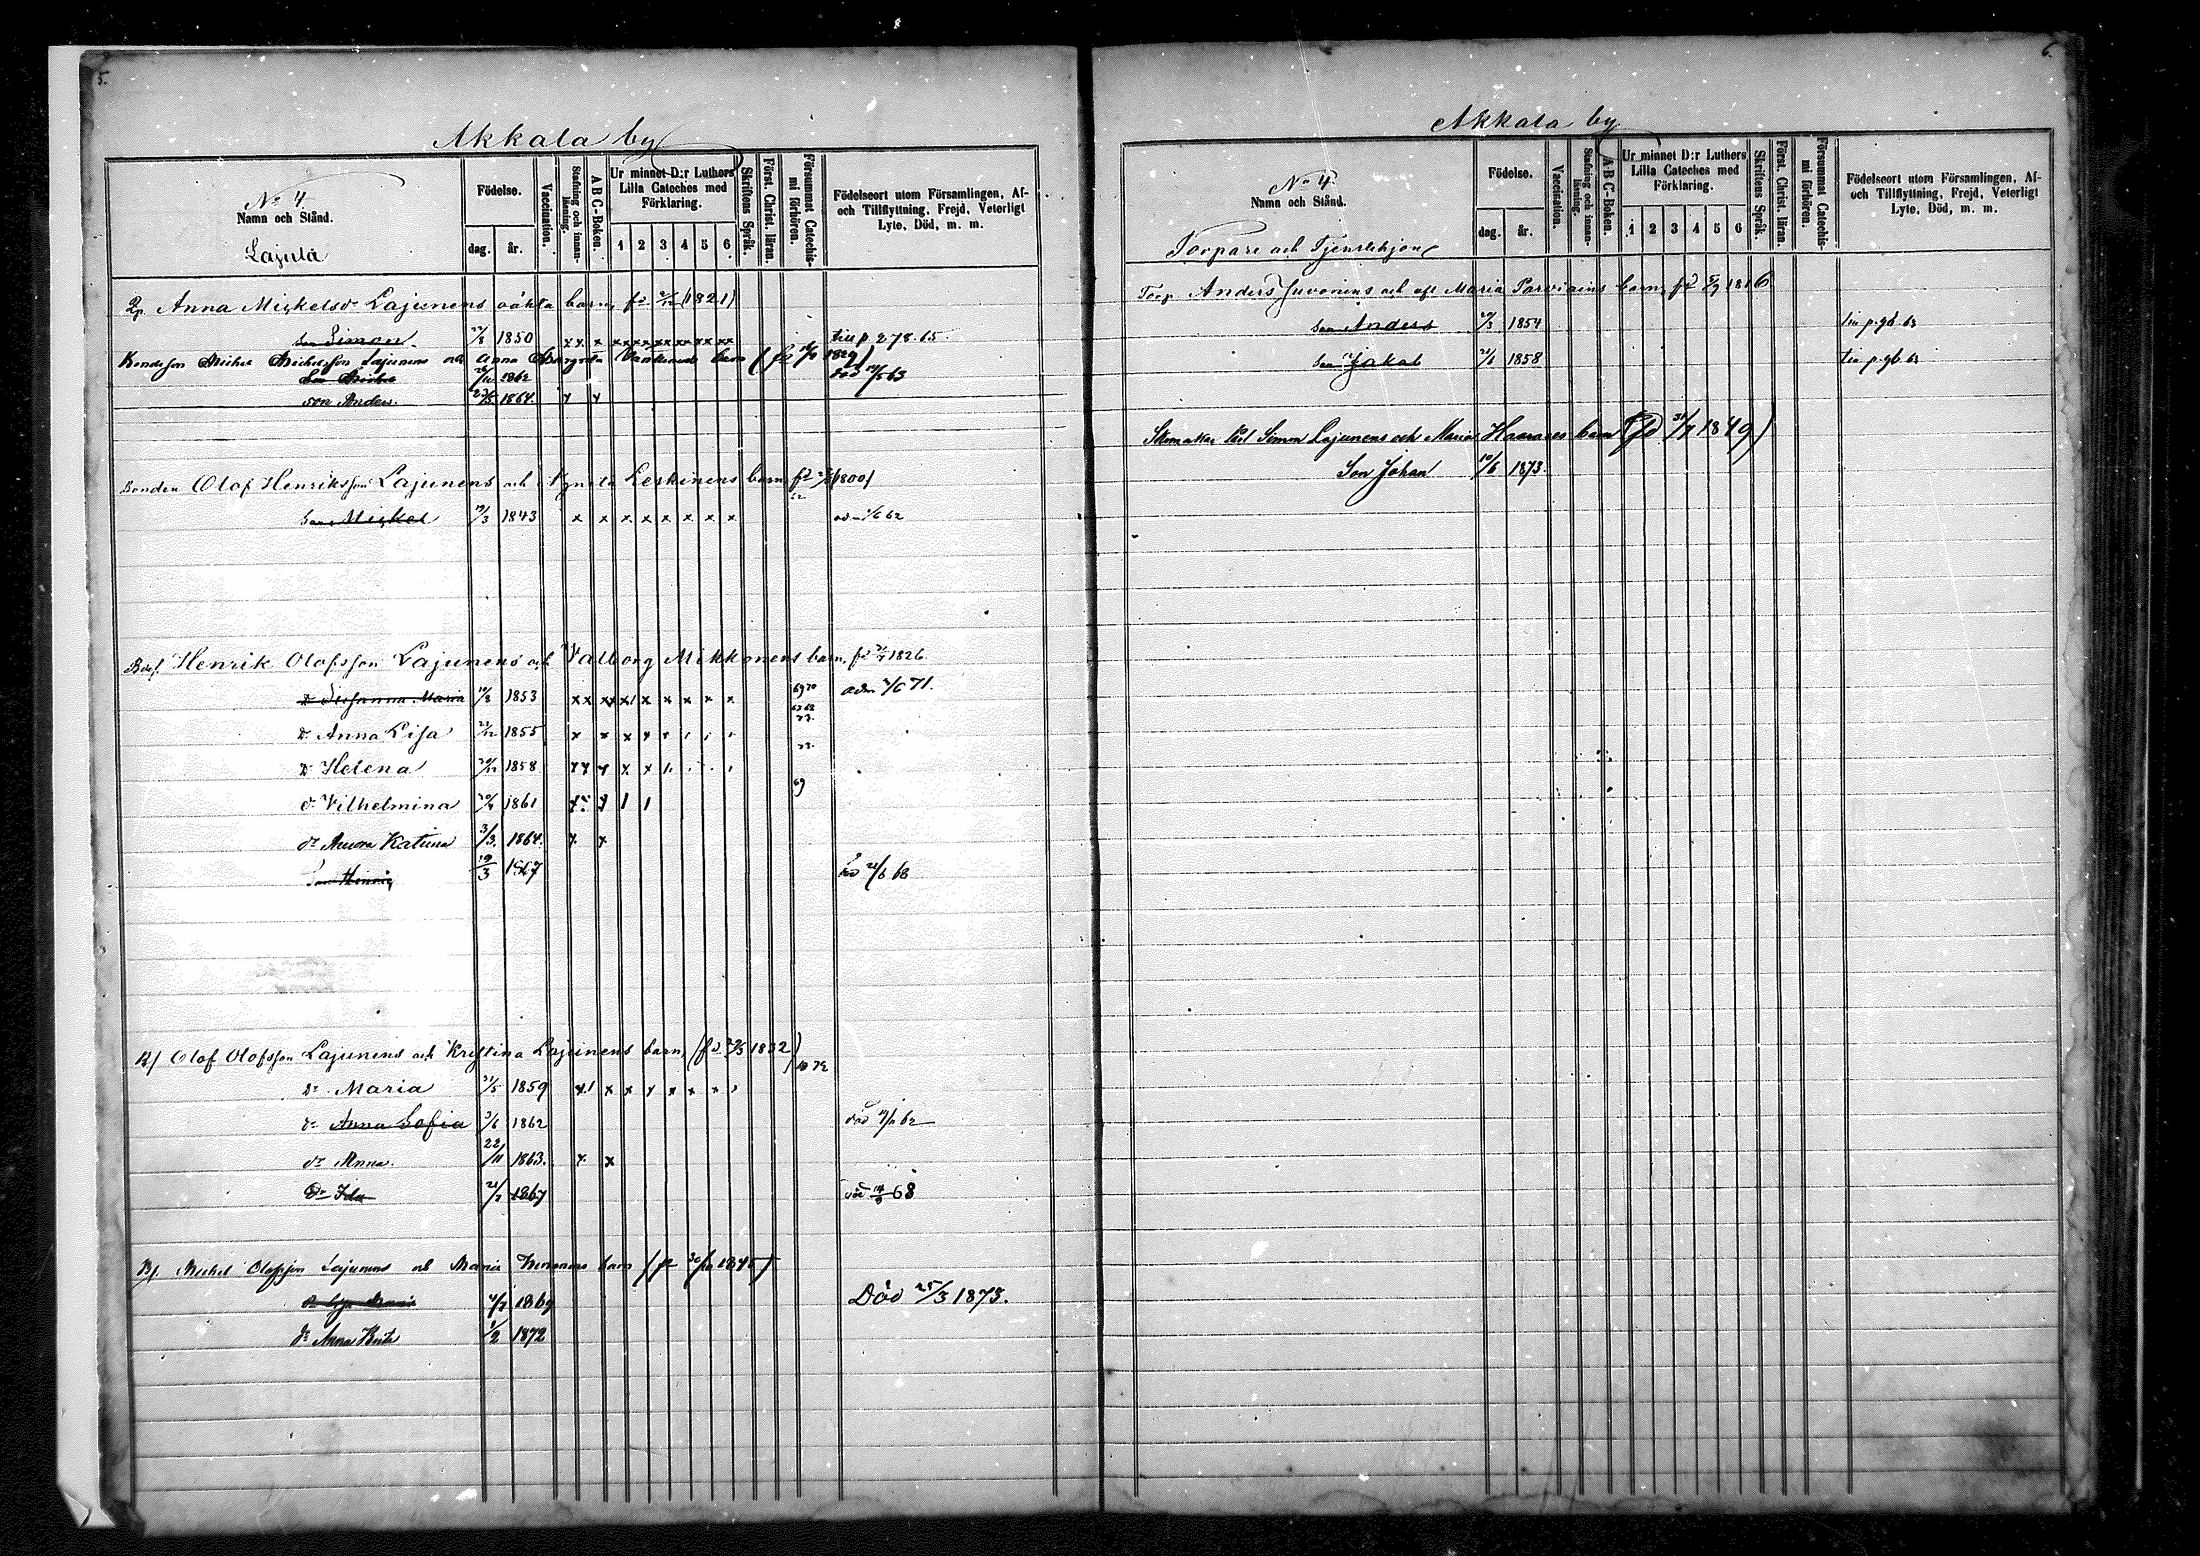 5.
Akkala by
No 4.
Namn och Stånd.
Lajula
Födelse.
dag. år.
Vaccination.
Stafning och innanläsning.
A B C-Boken.
Ur minnet D:r Luthers Lilla Cateches med Förklaring.
1 2 3 4 5 6
Skriftens Språk.
Först. Christ. läran.
Försummat Catechismi förhören.
Födelseort utom Församlingen, Af- och Tillflyttning, Frejd, Veterligt Lyte, Död, m. m.
Anna Mickelsdr Lajunens oäkta barn, fd 2/12 (1821)
Son Simon 1850 x x x x x x x x x till p. 278. 65.
Bondeson Michel Michelsson Lajunens och Anna Margreta barn (fd 1829)
Son Michel 1862 död 63
son Anders. 1864 x x
Bonden Olof Henriksson Lajunens och Agneta Leskinens barn fd (1800)
Son Mickel 19/3 1843 x x x x x x x x adm 1/6 62
Henrik Olofsson Lajunens och Valborg Mikkonens barn, fd 1826
D Susanna Maria 10/8 1853 x x x x x x x x x 69 70 adm 71.
D. Anna Lisa 21/12 1855 x x x x x
D. Helena 1858 x x x x x
d. Vilhelmina 1861
dr Anna Katrina 3/3. 1864. x x
Son Henrik 19/3 1867 död 68
Olof Olofsson Lajunens och Kristina Lajunens barn, (fd 1832)
Dr Maria 31/5 1859 x x x x x x
dr Anna Sofia 3/6 1862 död 62
dr Anna. 22/11 1863. x x
Dr Ida 1867 död 68
Michel Olofsson Lajunens och Maria barn (fd 1845)
1869 Död 25/3 1873.
dr Anna 1/2 1872
6.
Akkala by
No 4.
Namn och Stånd.
Torpare och Tjenstehjon
Födelse.
dag. år.
Vaccination.
Stafning och innanläsning.
A B C-Boken.
Ur minnet D:r Luthers Lilla Cateches med Förklaring.
1 2 3 4 5 6
Skriftens Språk.
Först. Christ. läran.
Försummat Catechismi förhören.
Födelseort utom Församlingen, Af- och Tillflyttning, Frejd, Veterligt Lyte, Död, m. m.
Torp Anders Juvonens och afl Maria Parviains barn, fd 1816
Son Anders 1854
Son Jakob 1858
Skomakar Simon Lajunens och Maria barn (fd 1849)
Son Johan 10/6 1873.